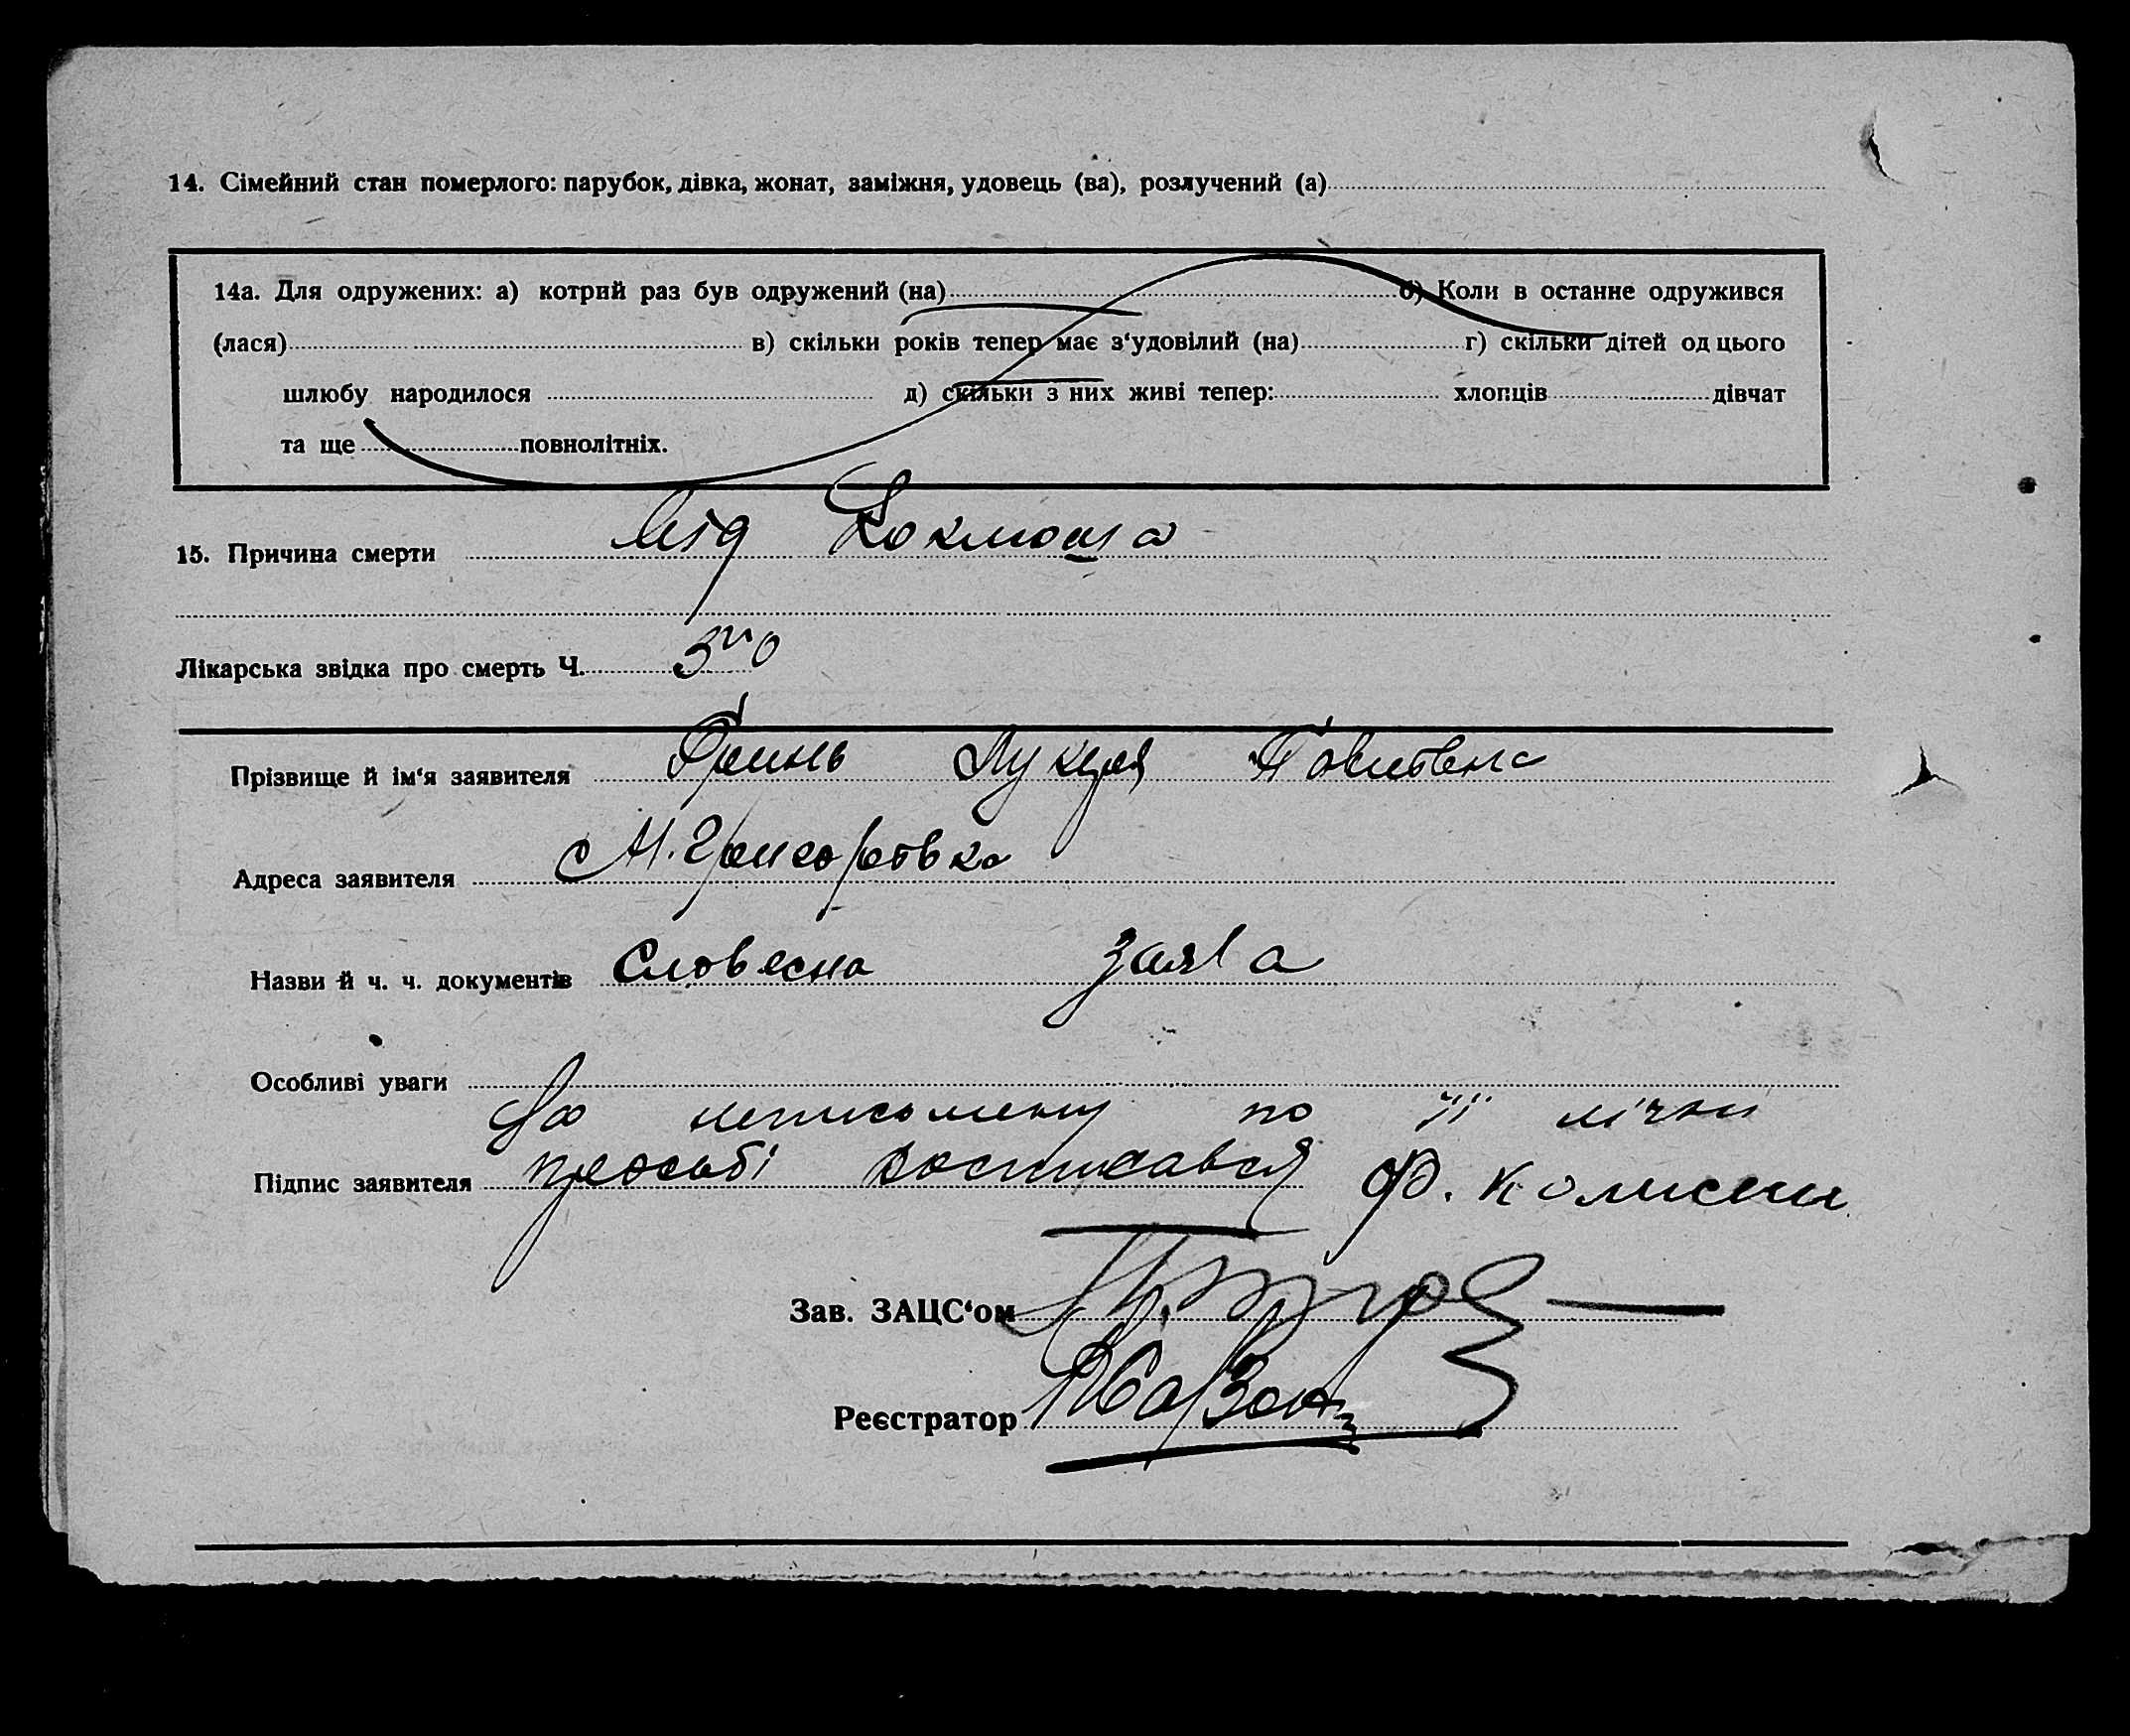 14. Сімейний стан померлого: парубок, дівка, жонат, заміжня, удовець (ва), розлучений (а)
14а. Для одружених: а) котрий раз був одружений (на) б) Коли в останне одружився
(лася) в) скільки років тепер має з‘удовілий (на) г) скільки дітей од цього
шлюбу народилося д) скільки з них живі тепер: хлопців дівчат
та ще повнолітніх.
15. Причина смерти від Коклюша
Лікарська звідка про смерть Ч.
Прізвище й ім‘я заявителя Гринь Лукерія Павловна
Адреса заявителя с М. Григоровка
Назви й ч. ч. документів Словесна заява
Особливі уваги
За неписьмену по її лічни
Підпис заявителя прозьбі росписався Ф. Колисни
Зав. ЗАЦС‘ом
Реєстратор